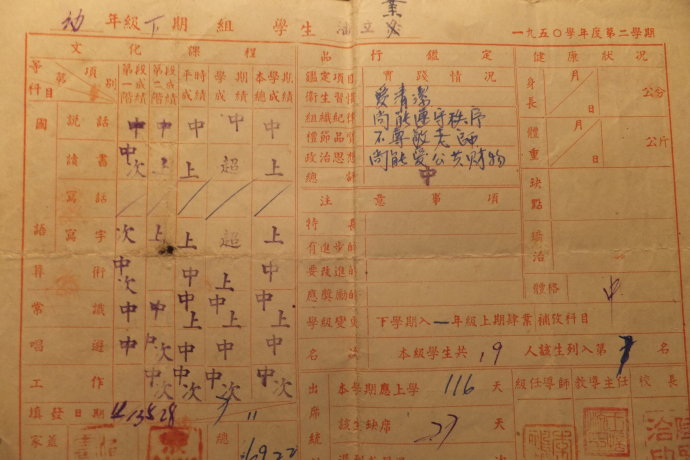 幼 年級下期 組 學生 業
一九五〇學年度第二學期
文化課程 品行鑑定 健康狀況
等第 項別 科目 第一階段成績 第二階段成績 平時成績 學期成績 本學期總成績
鑑定項目 實踐情況
衛生習慣 愛清潔
組織紀律 尚能遵守秩序
禮節品質 不尊敬老師
政治思想 尚能愛公共財物
總評 中
身長 月 日 公分
體重 月 日 公斤
缺點
矯治
體格 中
國語 說話 中 中 中 中 中
讀書 中次 上 上 超 上
寫話
寫字 次 上 上 超 上
算術 中次 中 中 上 中
常識 中 中 中上 中上 中上
唱遊 中 中次 中 中 中
工作 中次 中次 中次 中次
注意事項
特長
有進步的
要改進的
應獎勵的
學級變更 下學期入一年級上期肄業補攷科目
名次 本級學生共 19 人該生列入第 7 名
出席統 本學期應上學 116 天
該生缺席 27 天
級任導師 教導主任 校長
填發日期
家蓋
總